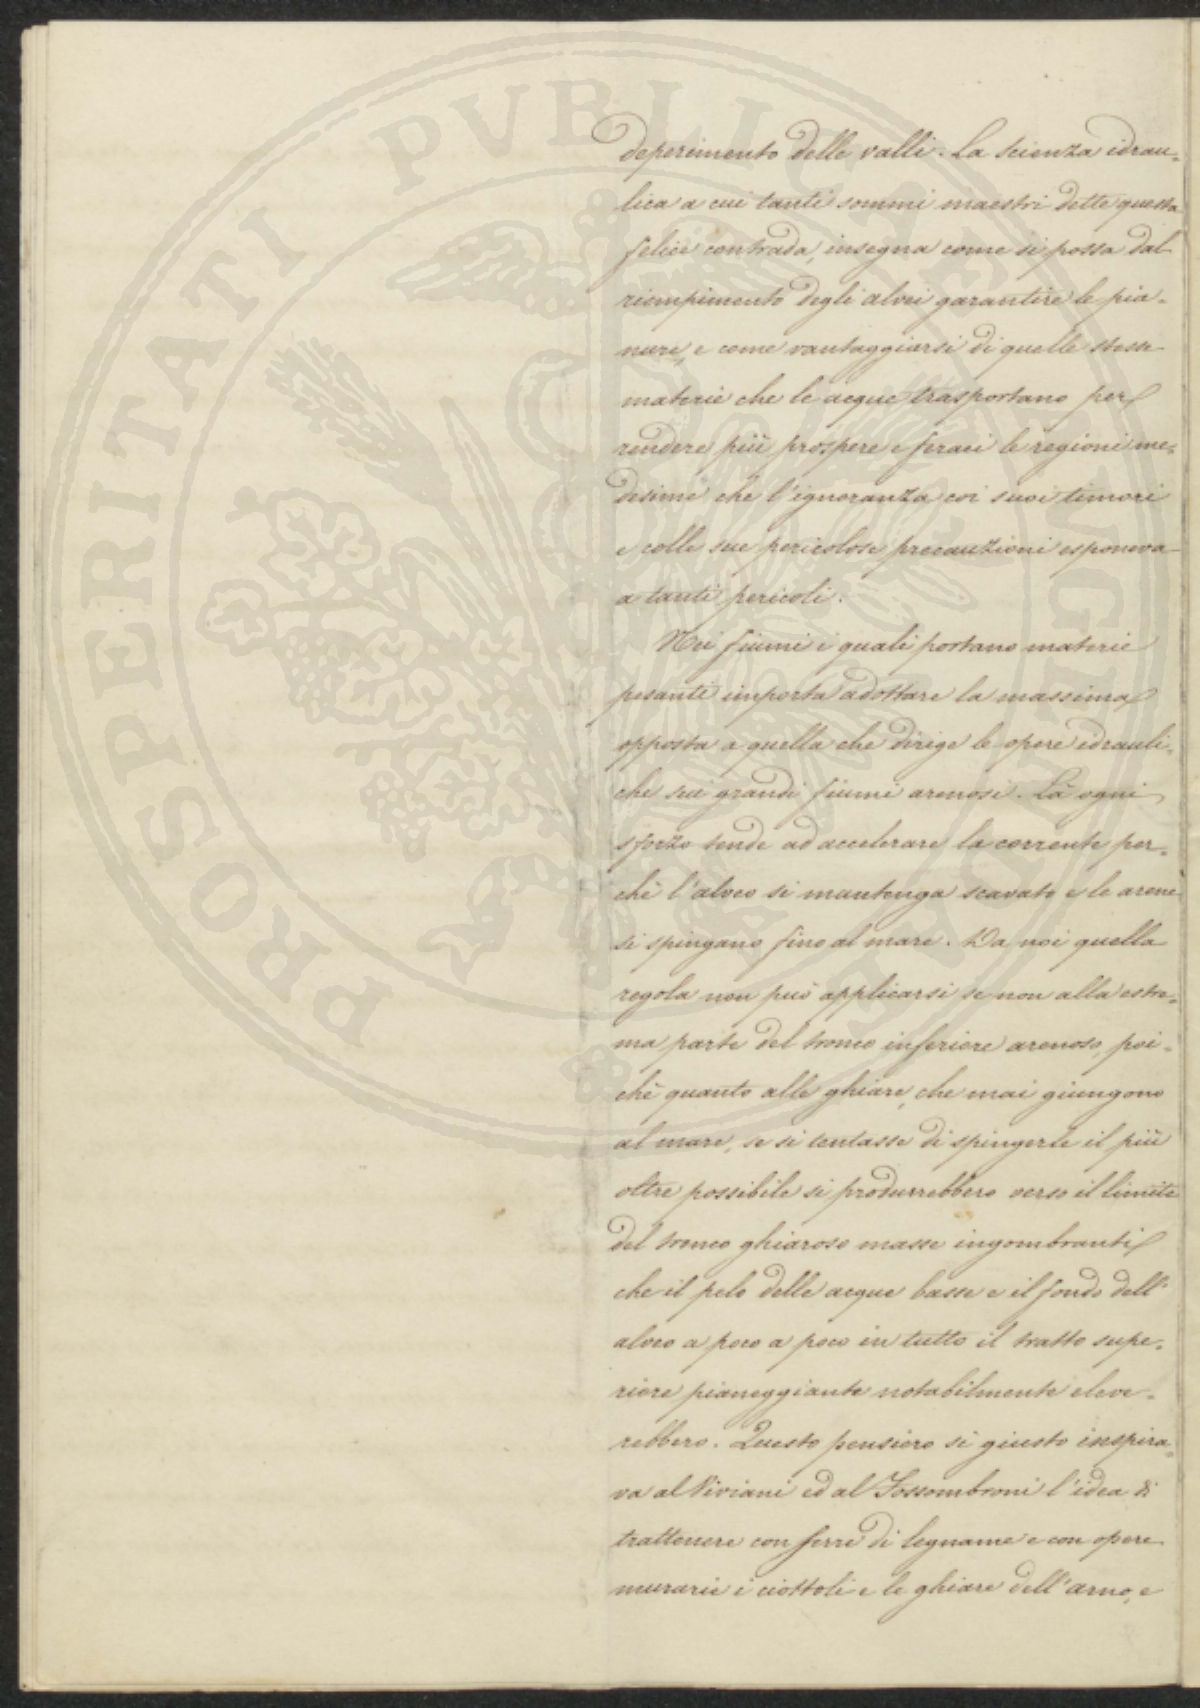 deperimento delle valli. La scienza idrau-
lica a cui tanti sommi maestri dette questa
felice contrada, insegna come si possa dal
riempimento degli alvei garantire le pia-
nure, e come vantaggiarsi di quelle stesse
materie che le acque trasportano per
rendere più prospere e feraci le regioni me-
desime che l'ignoranza coi suoi timori
e colle sue pericolose precauzioni esponeva
a tanti pericoli.
Nei fiumi i quali portano materie
pesanti importa adottare la massima
opposta a quella che dirige le opere idrauli-
che sui grandi fiumi arenosi. Là ogni
sforzo tende ad accelerare la corrente per-
chè l'alveo si mantenga scavato e le arene
si spingano fino al mare. Da noi quella
regola non può applicarsi se non alla estre-
ma parte del tronco inferiore arenoso, poi-
chè quanto alle ghiare, che mai giungono
al mare, se si tentasse di spingerle il più
oltre possibile si produrrebbero verso il limite
del tronco ghiaroso masse ingombranti
che il pelo delle acque basse e il fondo dell'
alveo a poco a poco in tutto il tratto supe-
riore pianeggiante notabilmente eleve-
rebbero. Questo pensiero sì giusto inspira-
va al Viviani ed al Fossombroni l'idea di
trattenere con serre di legname e con opere
murarie i ciottoli e le ghiare dell'arno, e
PROSPERITATI PVBLICAE AVGENDAE